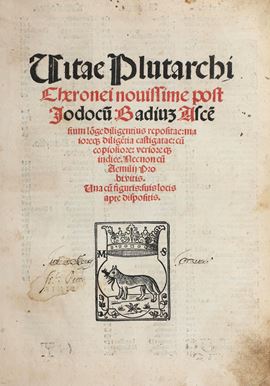 Vitae Plutarchi
Cheronei nouissime post
Jodocū Badiuȝ Ascē
sium lōge diligentius repositae: ma
ioreqȝ diligētia castigatae: cū
copiosiore: verioreqȝ
indice. Necnon cū
Aemilij Pro
bi vitis.
Una cū figuris: suis locis
apte dispositis.
M S